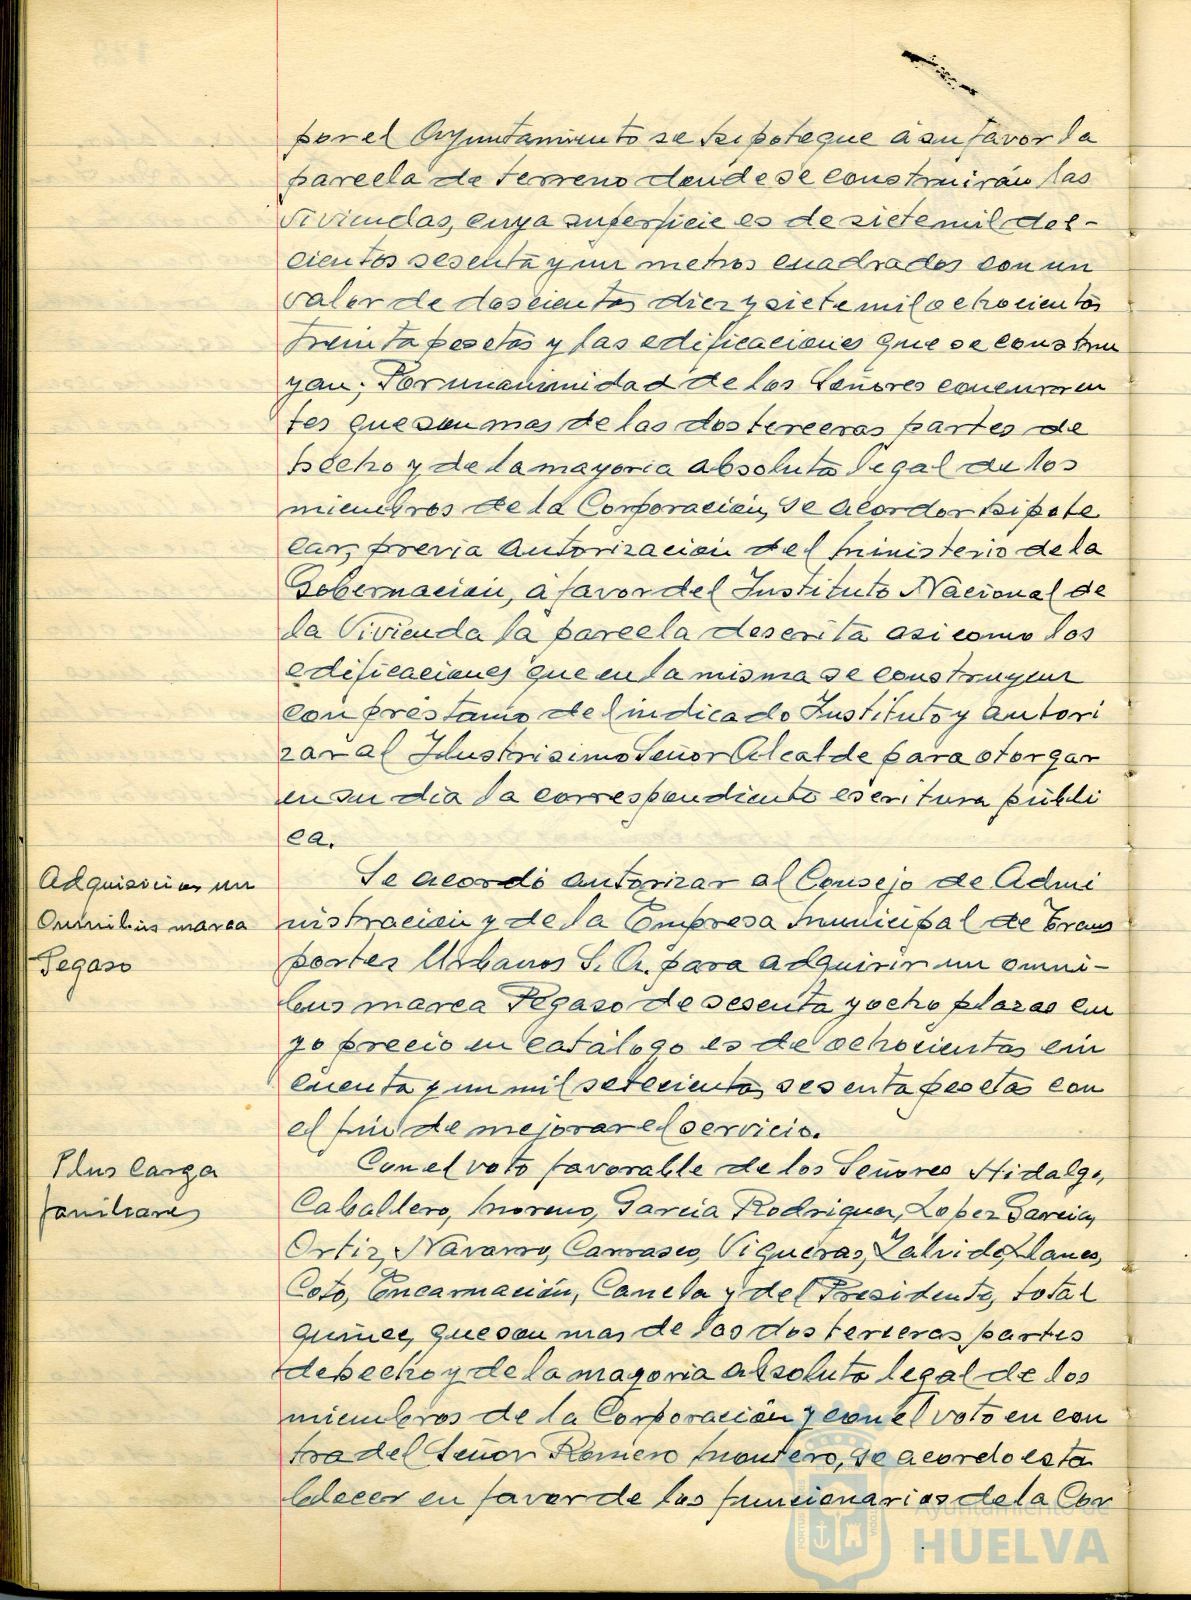 por el Ayuntamiento se hipoteque á su favor la
parcela de terreno donde se construirán las
viviendas, cuya superficie es de siete mil dos-
cientos sesenta y un metros cuadrados con un
valor de doscientas diez y siete mil ochocientas
treinta pesetas y las edificaciones que se constru
yan; Por unanimidad de los Señores concurren
tes que son mas de las dos terceras partes de
hecho y de la mayoria absoluta legal de los
miembros de la Corporación, se acordor hipote
car, previa autorización del Ministerio de la
Gobernación, á favor del Instituto Nacional de
la Vivienda la parcela descrita asi como las
edificaciones que en la misma se construyeun
con préstamo del indicado Instituto y autori
zar al Ilustrisimo Señor Alcalde para otorgar
en su dia la correspondiente escritura públi
ca.
Adquisicion un
Omnibus marca
Pegaso
Se acordó autorizar al Consejo de Admi
nistración y de la Empresa Municipal de Trans
portes Urbanos S. A. para adquirir un omni-
bus marca Pegaso de sesenta y ocho plazas cu
yo precio en catálogo es de ochocientas cin
cuenta y un mil setecientas sesenta pesetas con
el fin de mejorar el servicio.
Plus Carga
familiares
Con el voto favorable de los Señores Hidalgo,
Caballero, Moreno, Garcia Rodriguez, Lopez Garcia,
Ortiz, Navarro, Carrasco, Vigueras, Zalvide, Llanes,
Coto, Encarnación, Canela y del Presidente, total
quince, que son mas de las dos terceras partes
de hecho y de la mayoria absoluta legal de los
miembros de la Corporación y con el voto en con
tra del Señor Romero Montero, se acordo esta
blecer en favor de los funcionarios de la Cor
Ayuntamiento de
HUELVA